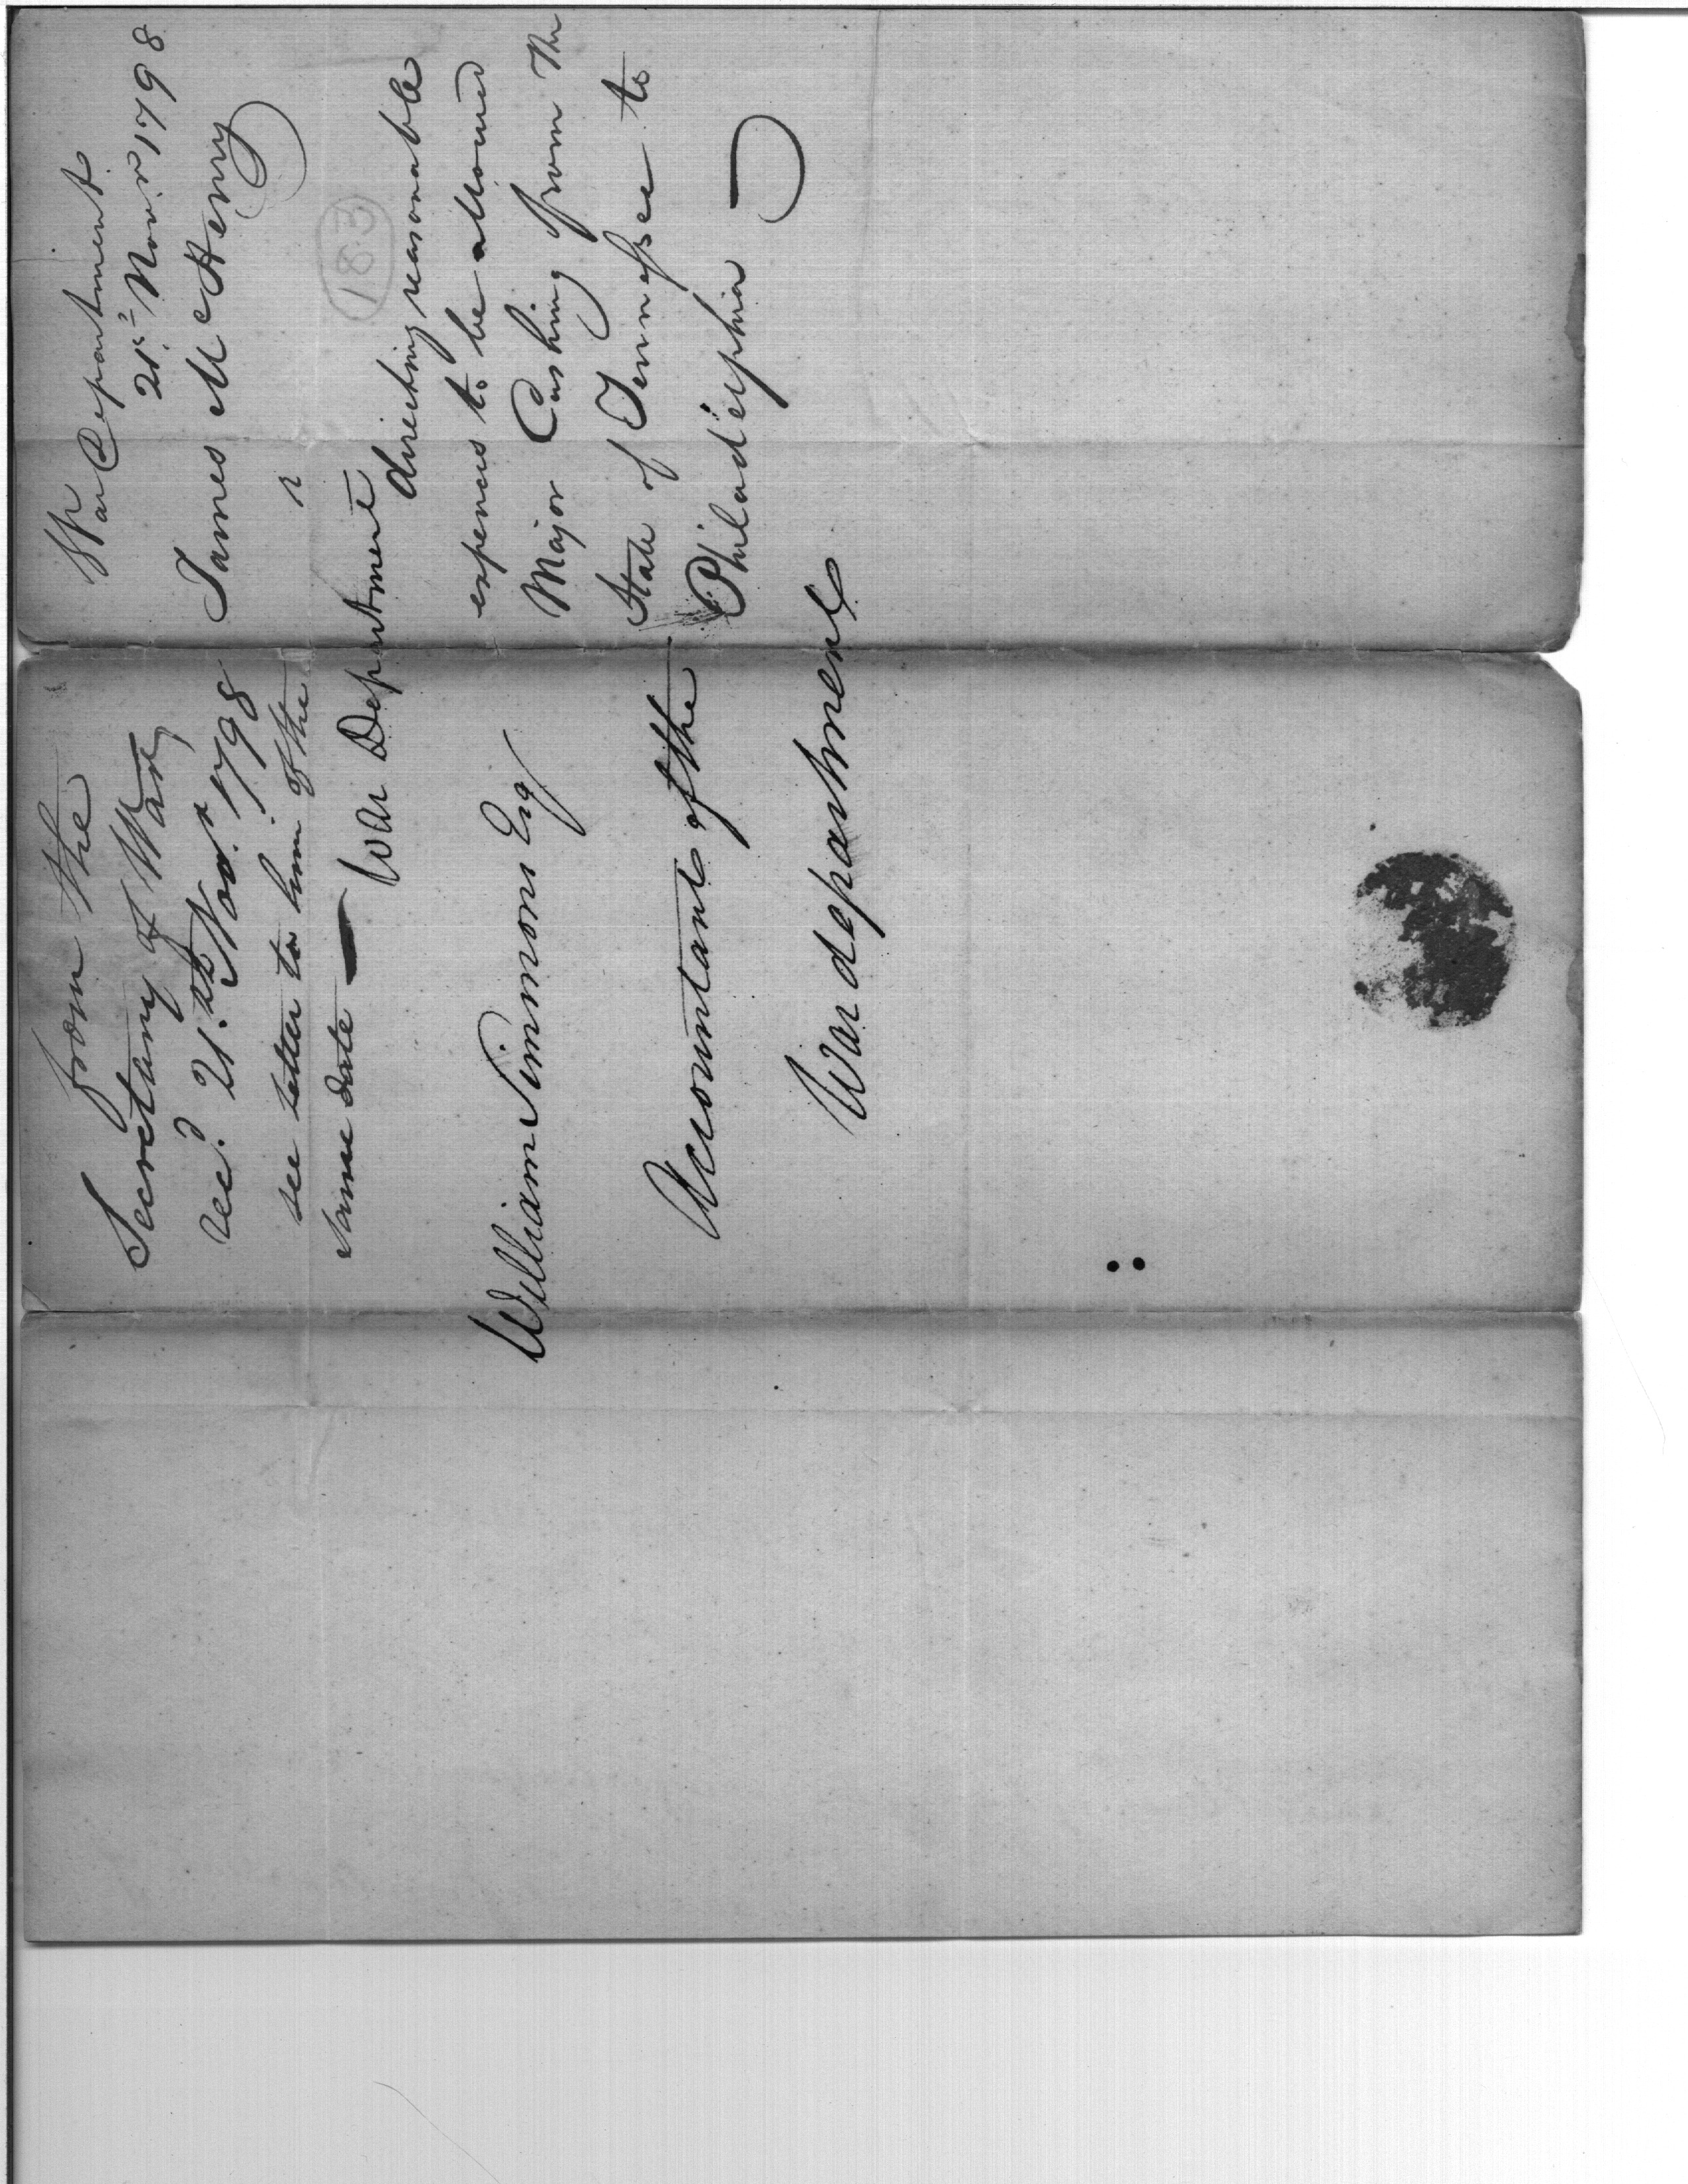 from the
Secretary of War,
Rec.d 21.st Nov.r 1798
see letter to him of the
same date —
War Department
William Simmons Esq
Accountant of the
War department
War Department.
21st Nov.r 1798
James McHenry
183
directing reasonable
expences to be allowed
Major Cushing from the
State of Tennessee to
Philadelphia